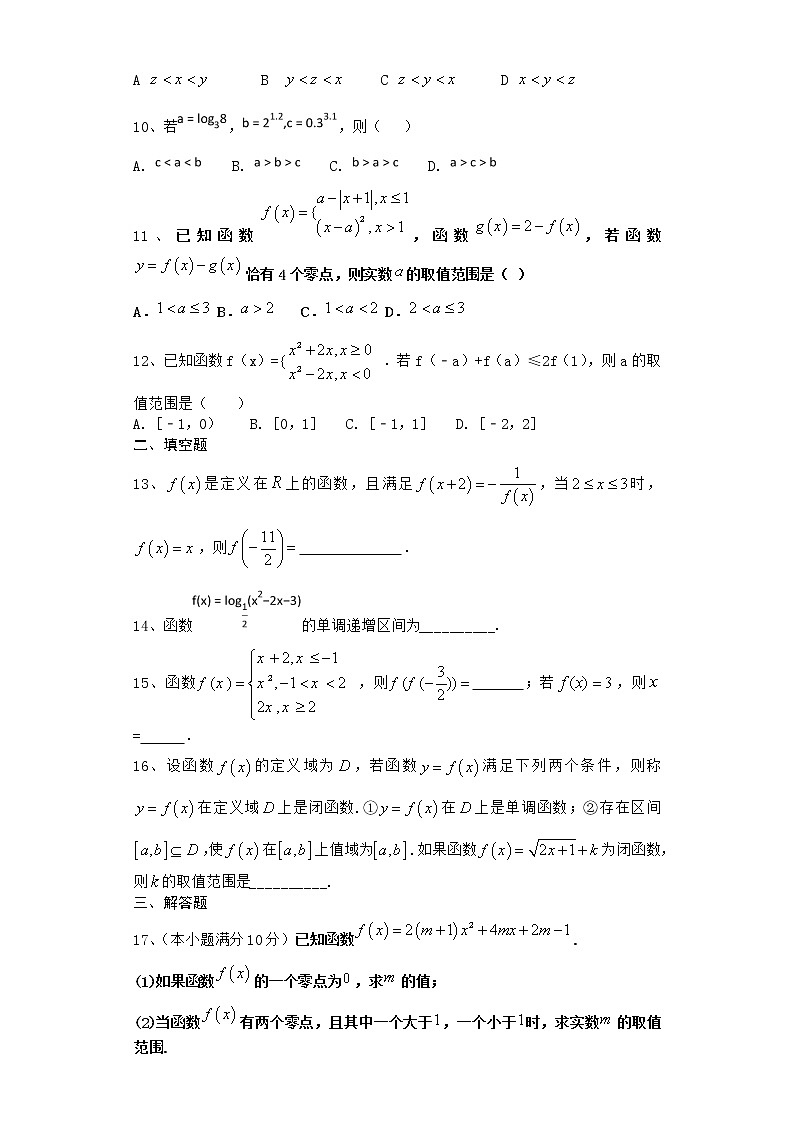 A z < x < y B y < z < x C z < y < x D x < y < z
10、若a = log₃8,b = 2^1.2,c = 0.3^3.1,则( )
A. c < a < b B. a > b > c C. b > a > c D. a > c > b
11、已知函数 f(x) = { a−|x+1|, x ≤ 1 (x−a)², x > 1 ,函数 g(x) = 2 − f(x) ,若函数
y = f(x) − g(x) 恰有4个零点,则实数a的取值范围是( )
A. 1 < a ≤ 3 B. a > 2 C. 1 < a < 2 D. 2 < a ≤ 3
12、已知函数f(x)={ x²+2x, x ≥ 0 x²−2x, x < 0 .若f(﹣a)+f(a)≤2f(1),则a的取
值范围是( )
A.[﹣1,0) B.[0,1] C.[﹣1,1] D.[﹣2,2]
二、填空题
13、f(x)是定义在R上的函数,且满足f(x+2) = −1/f(x),当2 ≤ x ≤ 3时,
f(x) = x,则f(−11/2) = ______________.
14、函数f(x) = log_{1/2}(x²−2x−3)的单调递增区间为__________.
15、函数f(x) = { x+2, x ≤ −1 x², −1 < x < 2 2x, x ≥ 2 ,则f(f(−3/2)) = _______;若f(x) = 3,则x
=______.
16、设函数f(x)的定义域为D,若函数y = f(x)满足下列两个条件,则称
y = f(x)在定义域D上是闭函数.①y = f(x)在D上是单调函数;②存在区间
[a,b] ⊆ D,使f(x)在[a,b]上值域为[a,b].如果函数f(x) = √(2x+1) + k为闭函数,
则k的取值范围是__________.
三、解答题
17、(本小题满分10分)已知函数f(x) = 2(m+1)x² + 4mx + 2m − 1.
(1)如果函数f(x)的一个零点为0,求m的值;
(2)当函数f(x)有两个零点,且其中一个大于1,一个小于1时,求实数m的取值
范围.